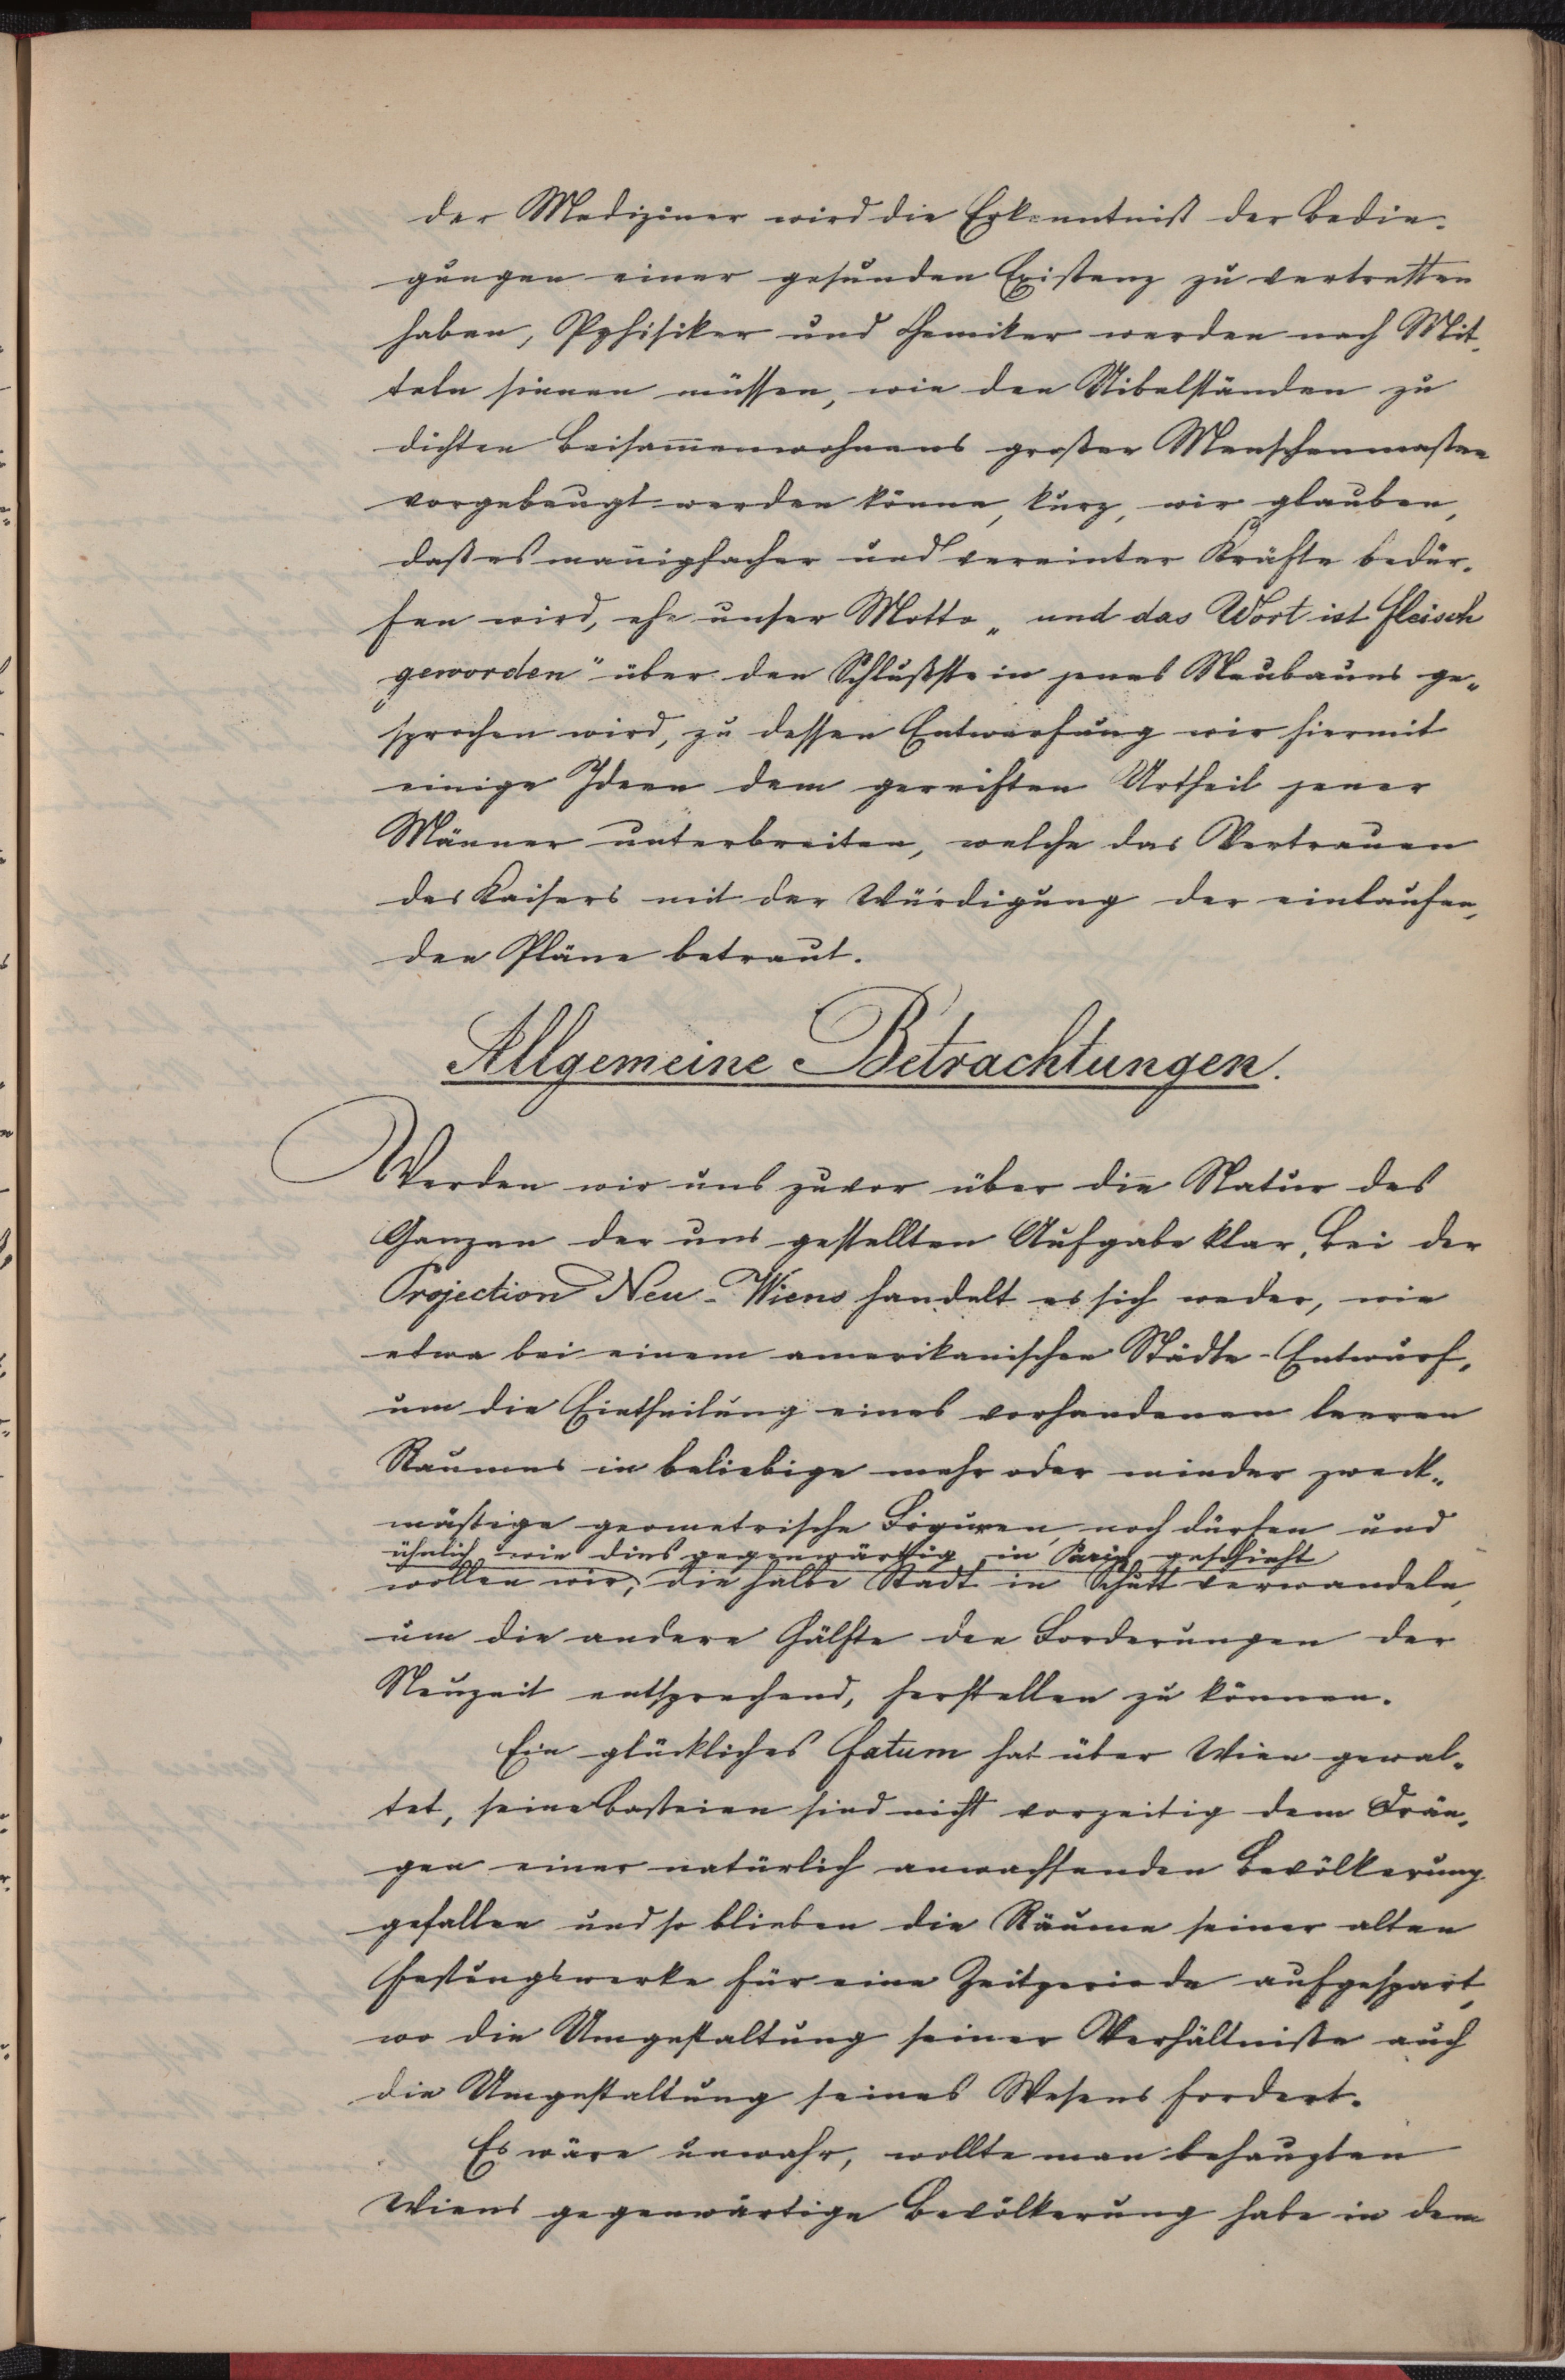 der Mediziner wird die Erkenntniß der Bedin-
gungen einer gesunden Existenz zu vertretten
haben, Pphisiker und Chemiker werden nach Mit-
teln sinnen müssen, wie den Uibelständen zu
dichten Beisam̄enwohnens großer Menschenmaßen
vorgebeugt werden könne, kurz, wir glauben,
daß es man̄igfacher und vereinter Kräfte bedür-
fen wird, ehe unser Motto „und das Wort ist fleisch
geworden" über den Schlußstein jenes Neubaues ge-
sprochen wird, zu dessen Entwerfung wir hiermit
einige Ideen dem gereiften Urtheil jener
Männer unterbreiten, welche das Vertrauen
des Kaisers mit der Würdigung der einlaufen-
den Pläne betraut.
Allgemeine Betrachtungen.
Werden wir uns zuvor über die Natur des
Ganzen der uns gestellten Aufgabe klar. Bei der
Projection Neu-Wiens handelt es sich weder, wie
etwa bei einem amerikanischen Städte-Entwurf,
um die Eintheilung eines vorhandenen leeren
Raumes in beliebige mehr oder minder zweck-
mäßige geometrische Figuren, noch dürfen und
ähnlich wie dies gegenwärttig in Paris geschieht
wollen wir, die halbe Stadt in Schutt verwandeln,
um die andere Hälfte den Forderungen der
Neuzeit entsprechend, herstellen zu können.
Ein glückliches Fatum hat über Wien gewal-
tet, seine Basteien sind nicht vorzeitig dem Drän-
gen einer natürlich anwachsenden Bevölkerung
gefallen und so blieben die Räume seiner alten
Festungswerke für eine Zeitperiode aufgespart,
wo die Umgestaltung seiner Verhältniße auch
die Umgestaltung seines Wesens fordert.
Es wäre unwahr, wollte man behaupten
Wiens gegenwärtige Bevölkerung habe in dem